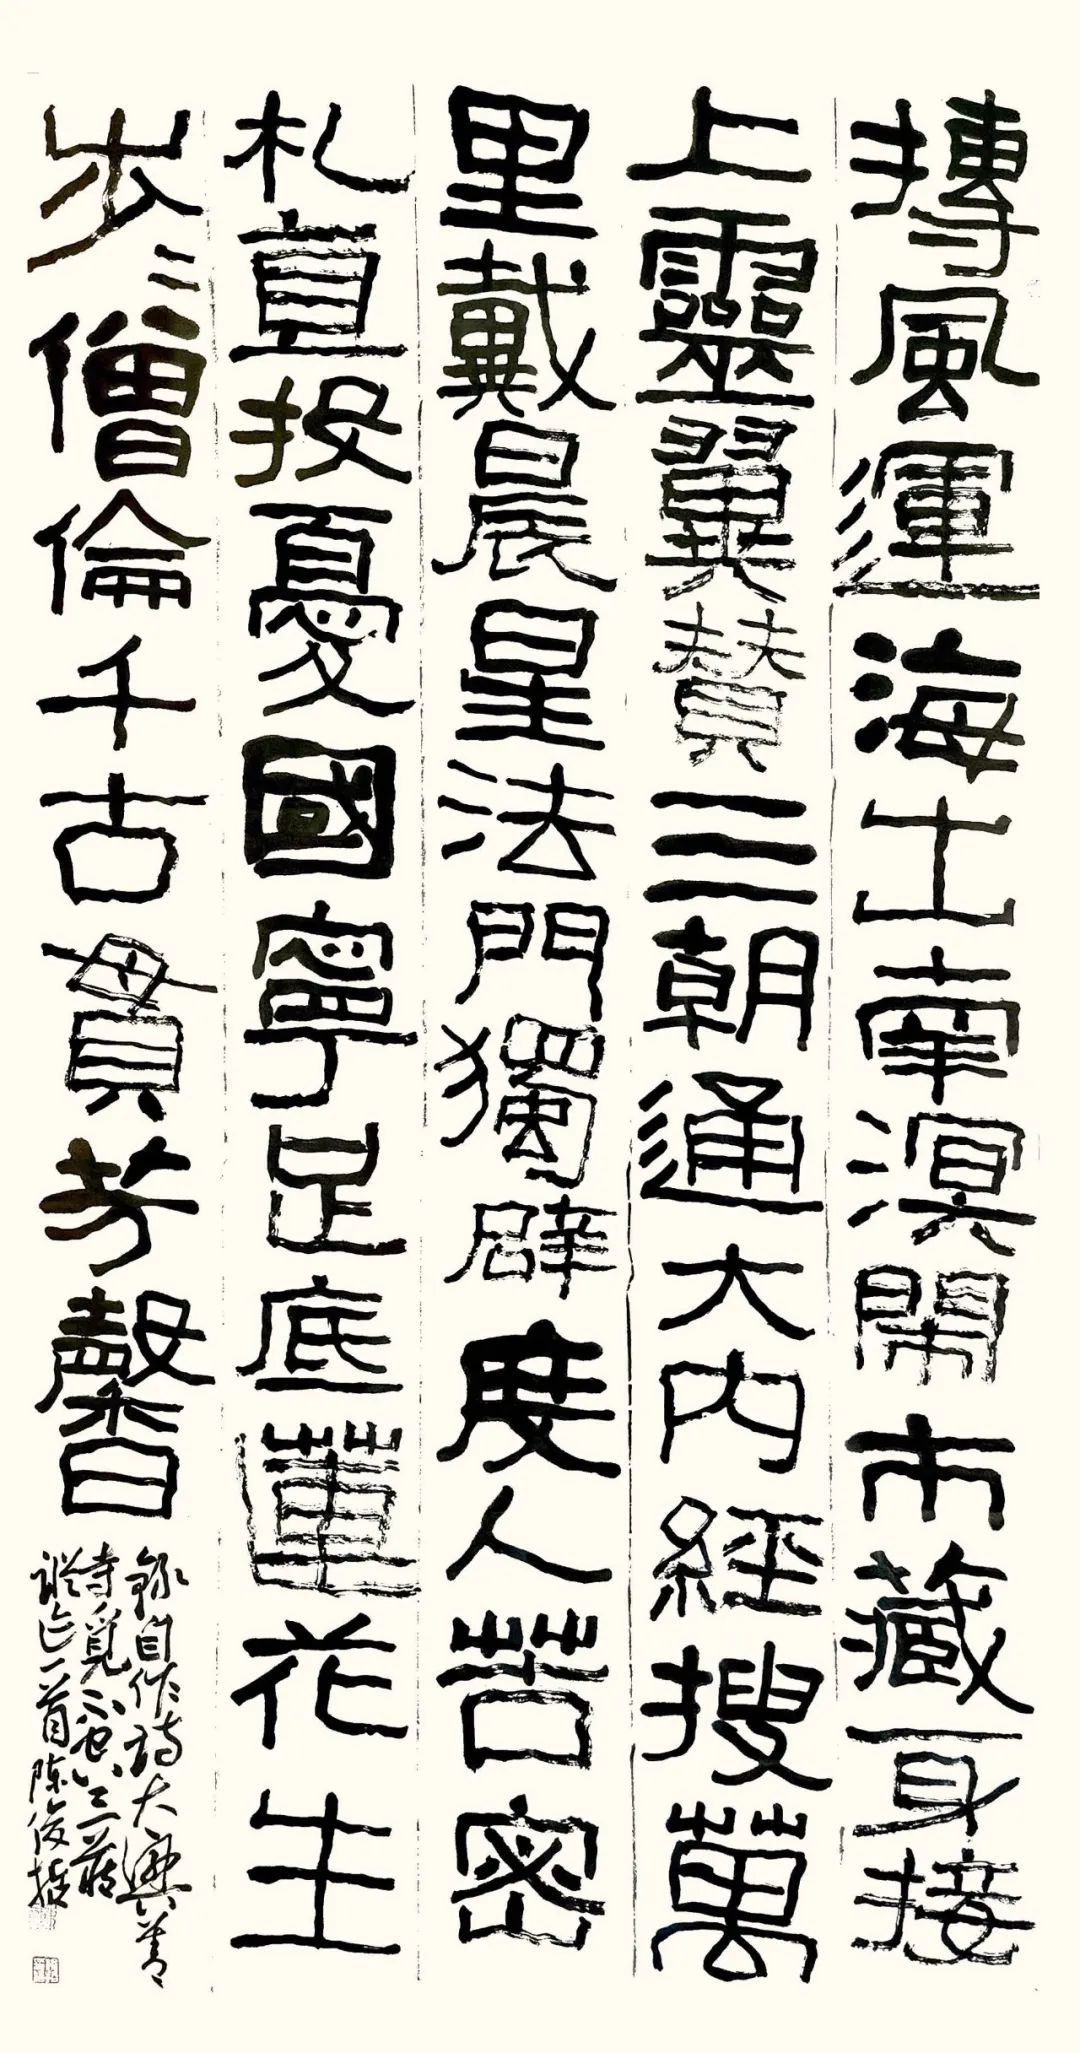 摶風運海出南溟閙市藏身接
上靈翼贊三朝通大内經搜萬
里戴晨星法門獨辟度人苦密
札直投憂國寧足底蓮花生
步〻僧倫千古貫芳馨
錄自作詩大興善
寺覓不空三藏
蹤迹一首陳俊哲